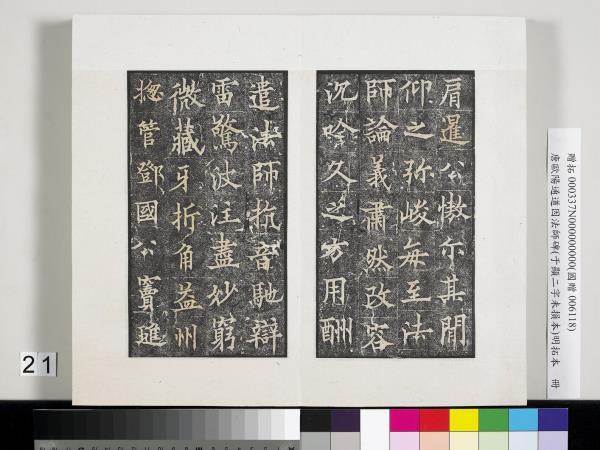 肩暹公懒尓其閒
仰之弥峻每至法
師論義肅然改容
沉吟久之方用酬
遣法師抗音馳辯
雷驚波注盡妙窮
微藏牙折角益州
捴管鄧國公竇璡
贈拓 000337N000000000(國贈 006118)
唐歐陽通道因法師碑(于顯二字未損本)明拓本 冊
21